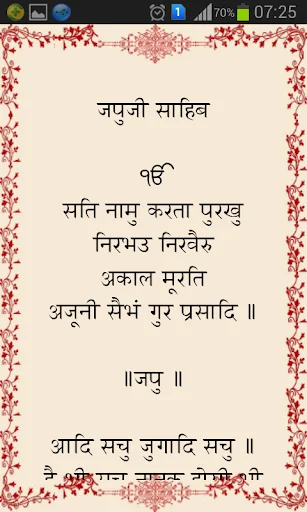 70% 07:25
जपुजी साहिब
ੴ
सति नामु करता पुरखु
निरभउ निरवैरु
अकाल मूरति
अजूनी सैभं गुर प्रसादि ॥
॥जपु ॥
आदि सचु जुगादि सचु ॥